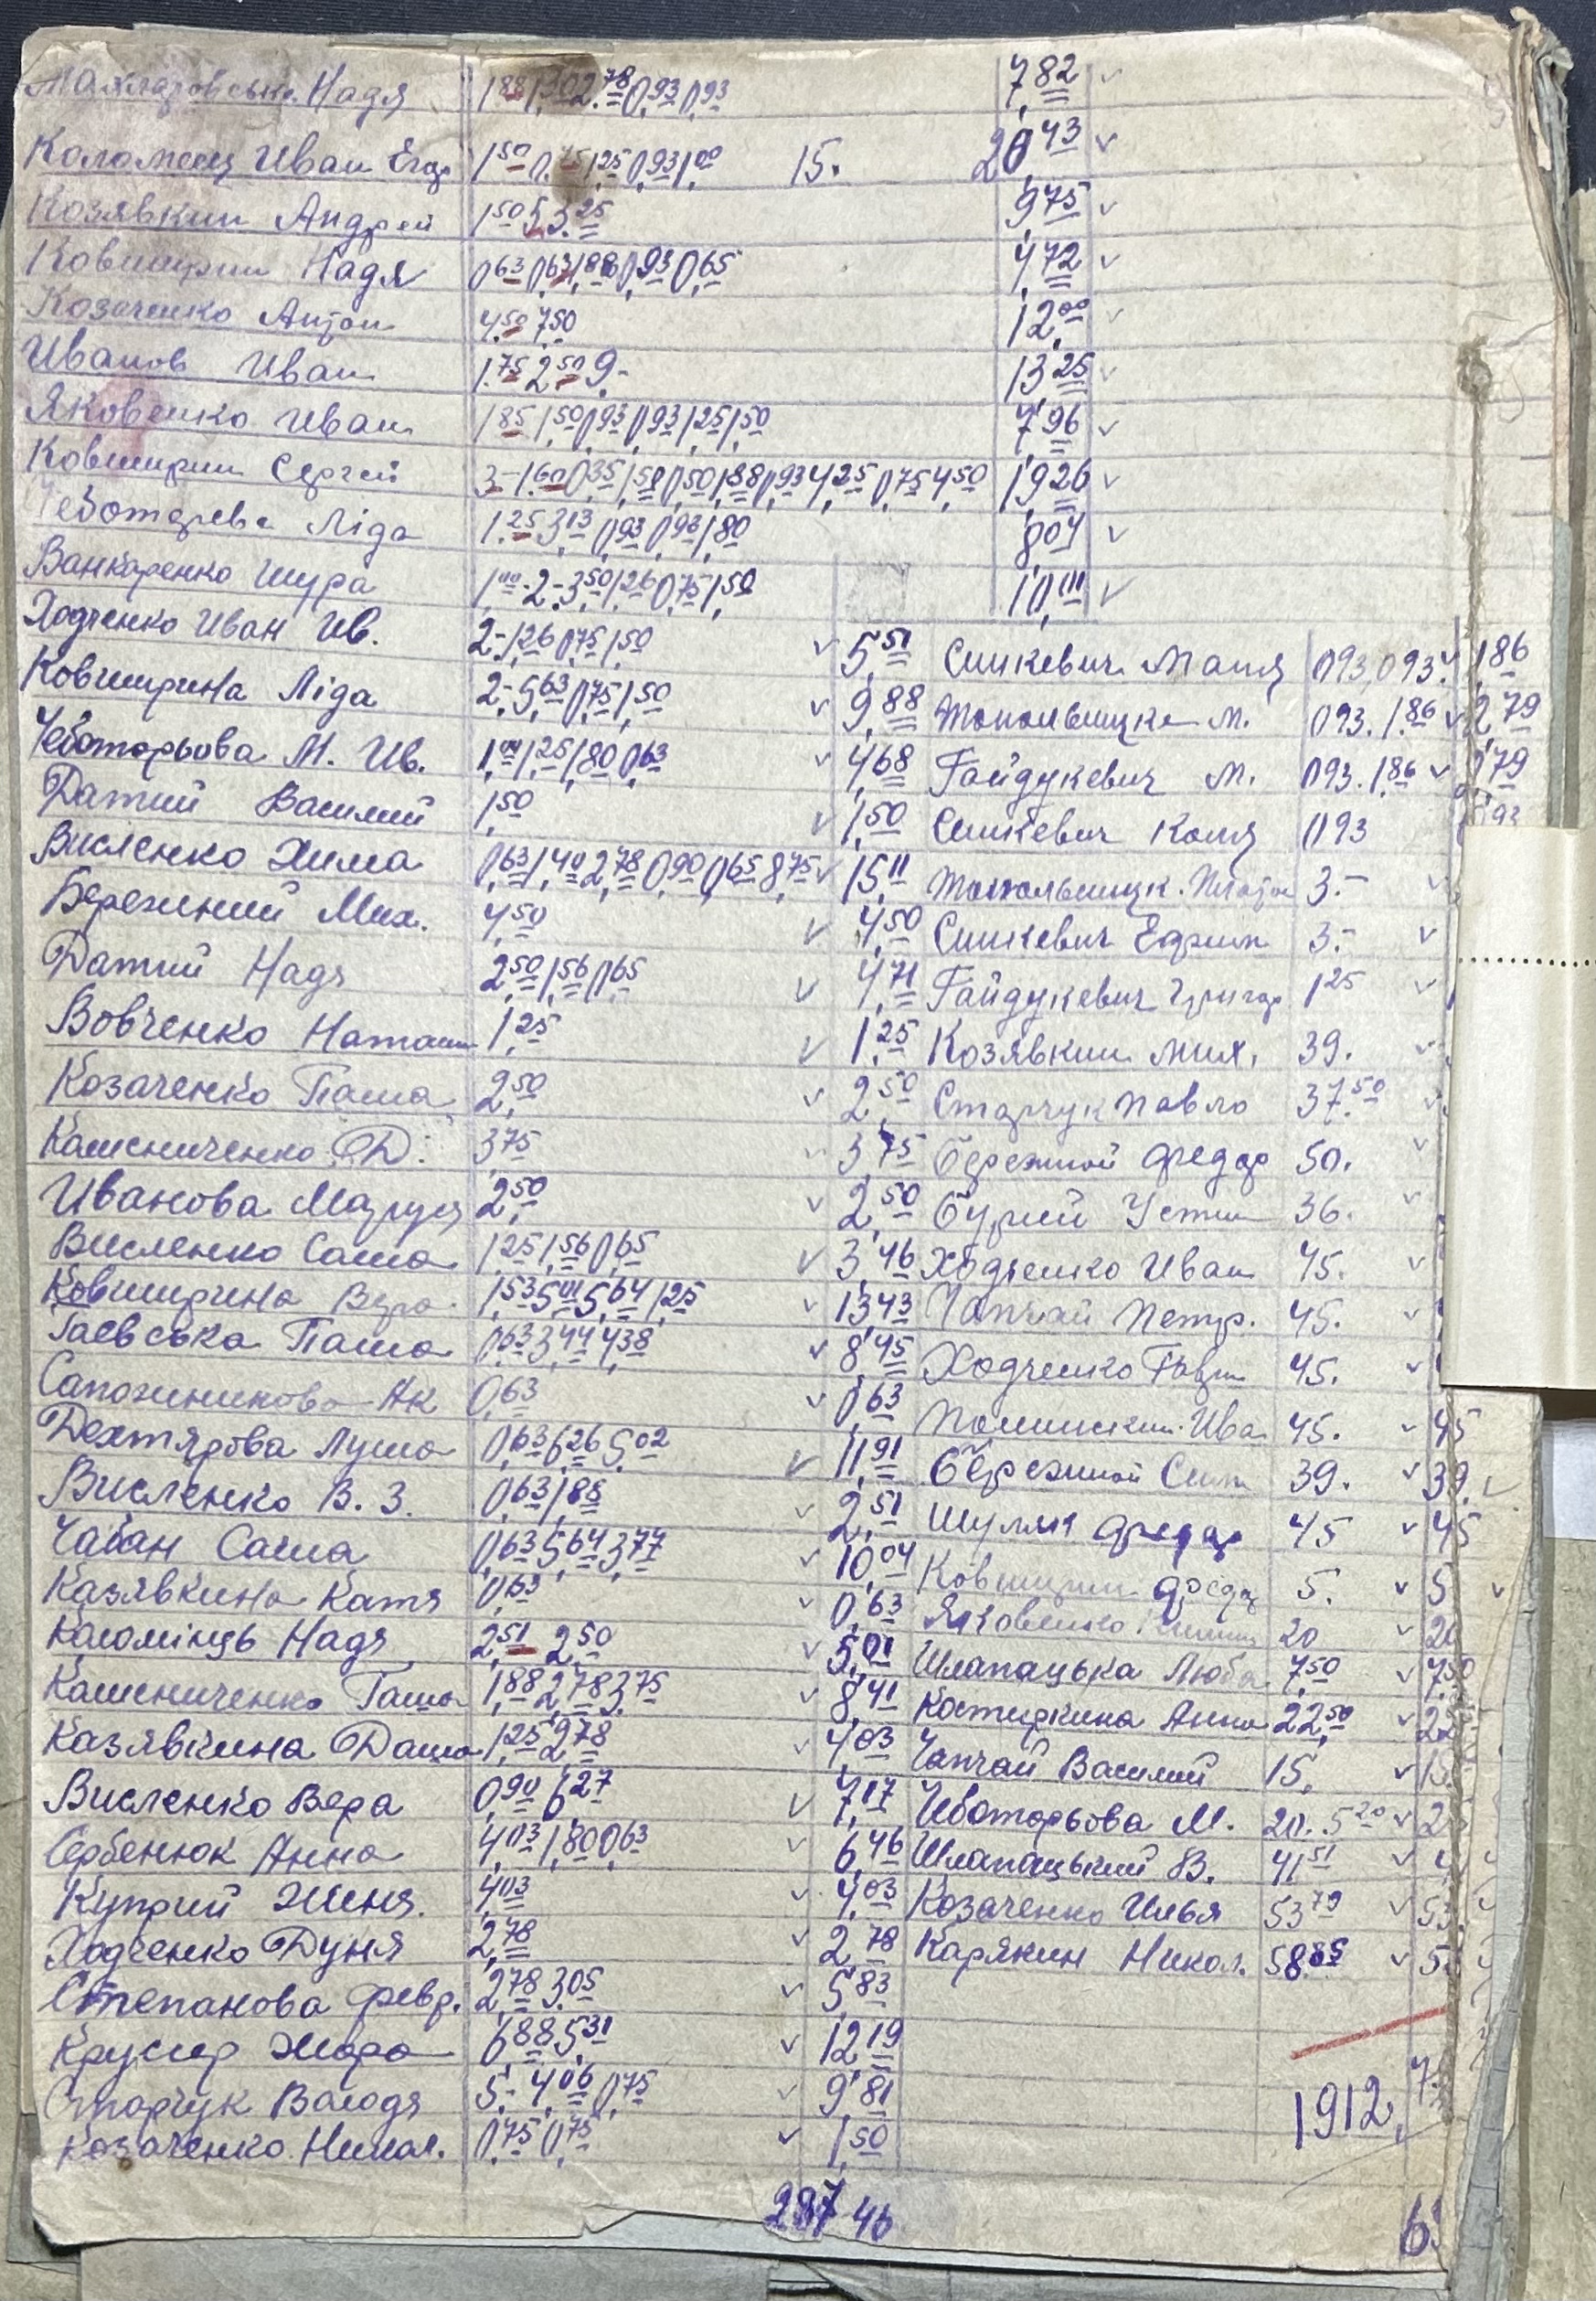 Надя 1,88 1,30 2,78 0,93 0,93 7,82 ✓
Коломеец Иван Егор 1,50 0,75 1,25 0,93 1,00 15. 20,43 ✓
Козявкин Андрей 1,50 5, 3,25 9,75 ✓
Ковширин Надя 0,63 0,63 1,88 0,93 0,65 4,72 ✓
Козаченко Антон 4,50 7,50 12,00 ✓
Иванов Иван 1,75 2,50 9.- 13,25 ✓
Яковенко Иван 1,85 1,50 0,93 0,93 1,25 1,50 7,96 ✓
Ковширин Сергей 3- 1,60 0,35 1,50 0,50 1,88 0,93 4,25 0,75 4,50 19,26 ✓
Чеботарева Ліда 1,25 3,13 0,93 0,93 1,80 8,04 ✓
Ванкаренко Шура 1,00 2- 3,50 1,26 0,75 1,50 10,01 ✓
Ходченко Иван Ив. 2- 1,26 0,75 1,50 ✓ 5,51 Синкевич Маня 0,93, 0,93 ✓ 1,86
Ковширина Ліда 2- 5,63 0,75 1,50 ✓ 9,88 М. 0,93. 1,86 ✓ 2,79
Чеботарьова М. Ив. 1,00 1,25 1,80 0,63 ✓ 4,68 Гайдукевич М. 0,93. 1,86 ✓ 2,79
Датий Василий 1,50 ✓ 1,50 Синкевич Коля 0,93
Висленко Хима 0,63 1,40 2,78 0,90 0,65 8,75 ✓ 15,11 3.- ✓
Бережний Мих. 4,50 ✓ 4,50 Синкевич Ефрим 3.- ✓
Датий Надя 2,50 1,56 0,65 ✓ 4,71 Гайдукевич Григор 1,25 ✓
Вовченко Наташа 1,25 ✓ 1,25 Козявкин Мих. 39. ✓
Козаченко Паша 2,50 ✓ 2,50 Старчук Павло 37,50 ✓
Калениченко Д. 3,75 ✓ 3,75 Бережной Федор 50. ✓
Иванова Маруся 2,50 ✓ 2,50 Бурий Устин 36. ✓
Висленко Саша 1,25 1,56 0,65 ✓ 3,46 Ходченко Иван 45. ✓
Ковширина Вера 1,53 5,01 5,64 1,25 ✓ 13,43 Чапчай Петр. 45. ✓
Гаевська Паша 0,63 3,44 4,38 ✓ 8,45 Ходченко Гавр 45. ✓
Сапожникова Ак 0,63 ✓ 0,63 Ива 45. ✓ 45
Дехтярова Луша 0,63 6,26 5,02 ✓ 11,91 Бережной Сим 39. ✓ 39. ✓
Висленко В. З. 0,63 1,88 ✓ 2,51 Шуляк Федор 45 ✓ 45
Чабан Саша 0,63 5,64 3,77 ✓ 10,04 Ковширин Федор 5. ✓ 5 ✓
Казявкина Катя 0,63 ✓ 0,63 Яковенко 20 ✓ 20
Коломінць Надя 2,51 2,50 ✓ 5,01 Шлапацька Люба 7,50 ✓ 7,50
Калениченко Гаша 1,88 2,78 3,75 ✓ 8,41 Костиркина Анна 22,50 ✓ 22
Казявкина Даша 1,25 2,78 ✓ 4,03 Чапчай Василий 15. ✓ 15.
Висленко Вера 0,90 6,27 ✓ 7,17 Чеботарьова М. 20. 5,20 ✓ 2
Сербенюк Анна 4,03 1,80 0,63 ✓ 6,46 Шлапацький В. 41,51 ✓ 4
Куприй Жиня. 4,03 ✓ 4,03 Козаченко Илья 53,79 ✓ 53
Ходченко Дуня 2,78 ✓ 2,78 Карякин Никол. 58,85 ✓ 5
Степанова Февр. 2,78 3,05 ✓ 5,83
Крупир Жора 6,88 5,31 ✓ 12,19
Старчук Володя 5,- 4,06 0,75 ✓ 9,81
Козаченко Никол. 0,75 0,75 ✓ 1,50
1912, 7
287 46 6